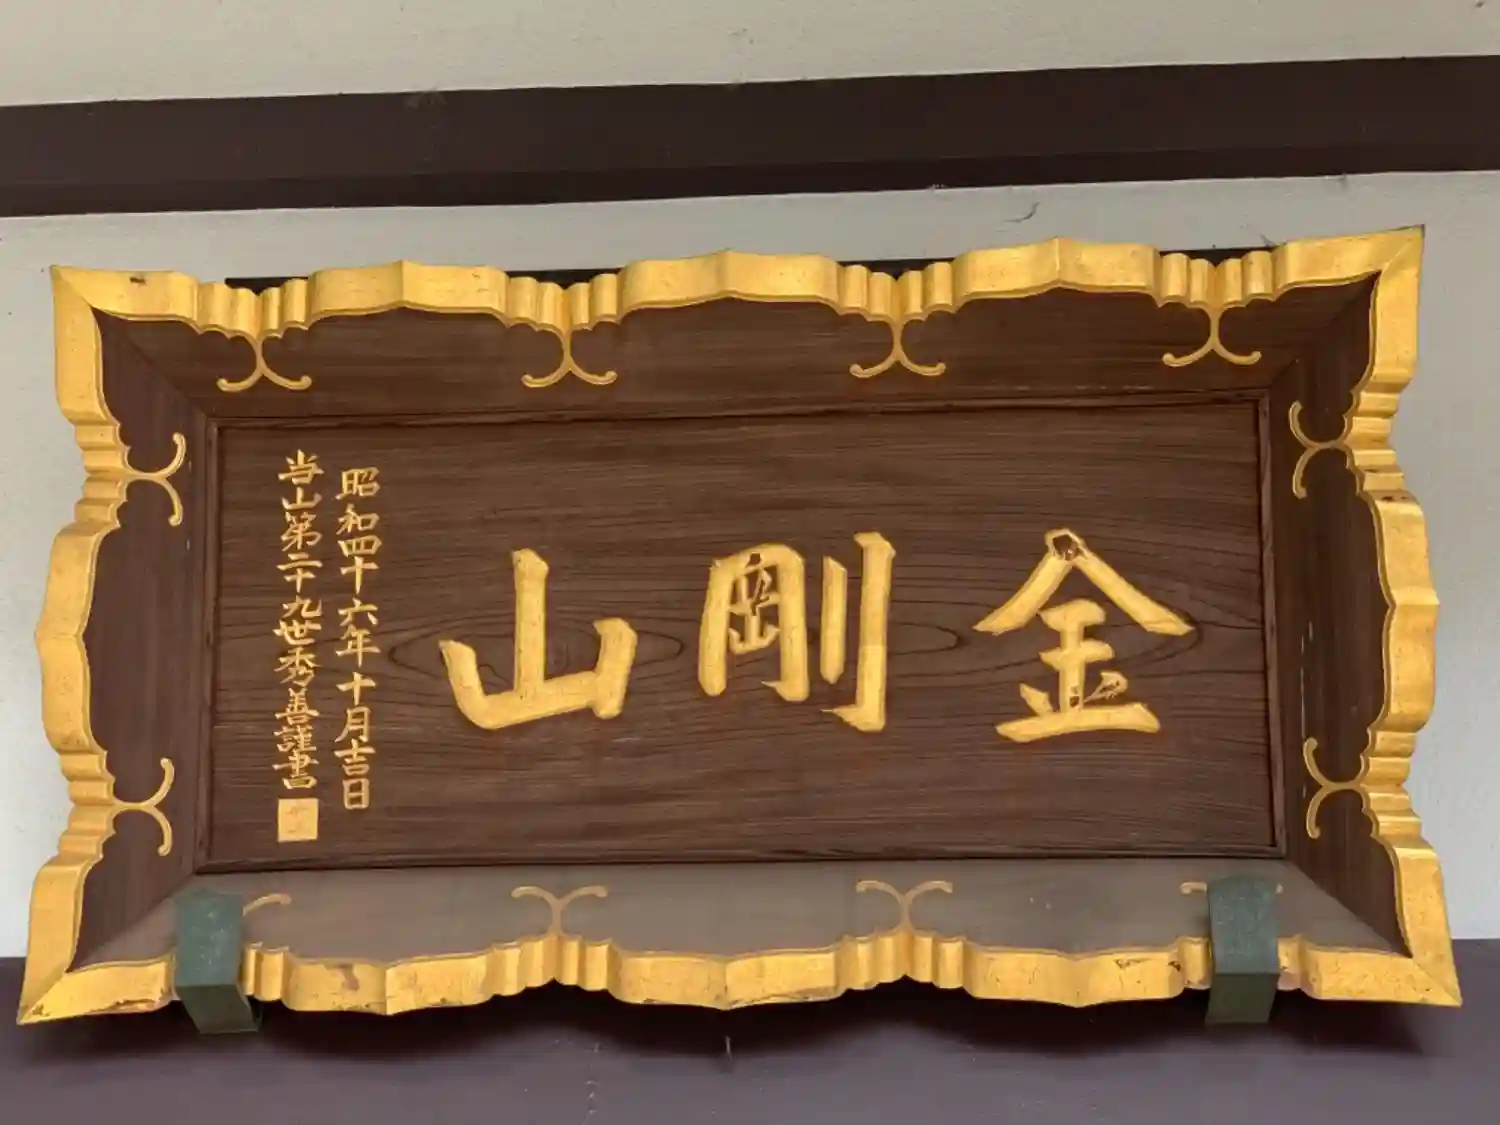 金剛山
昭和四十六年十月吉日
当山第二十九世秀善謹書